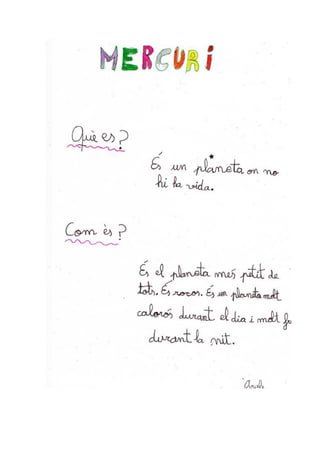 MERCURI
Què es?
És un planeta on no
hi ha vida.
Com és?
És el planeta més petit de
tots. És rocos. És un planeta molt
calorós durant el dia i molt
durant la nit.